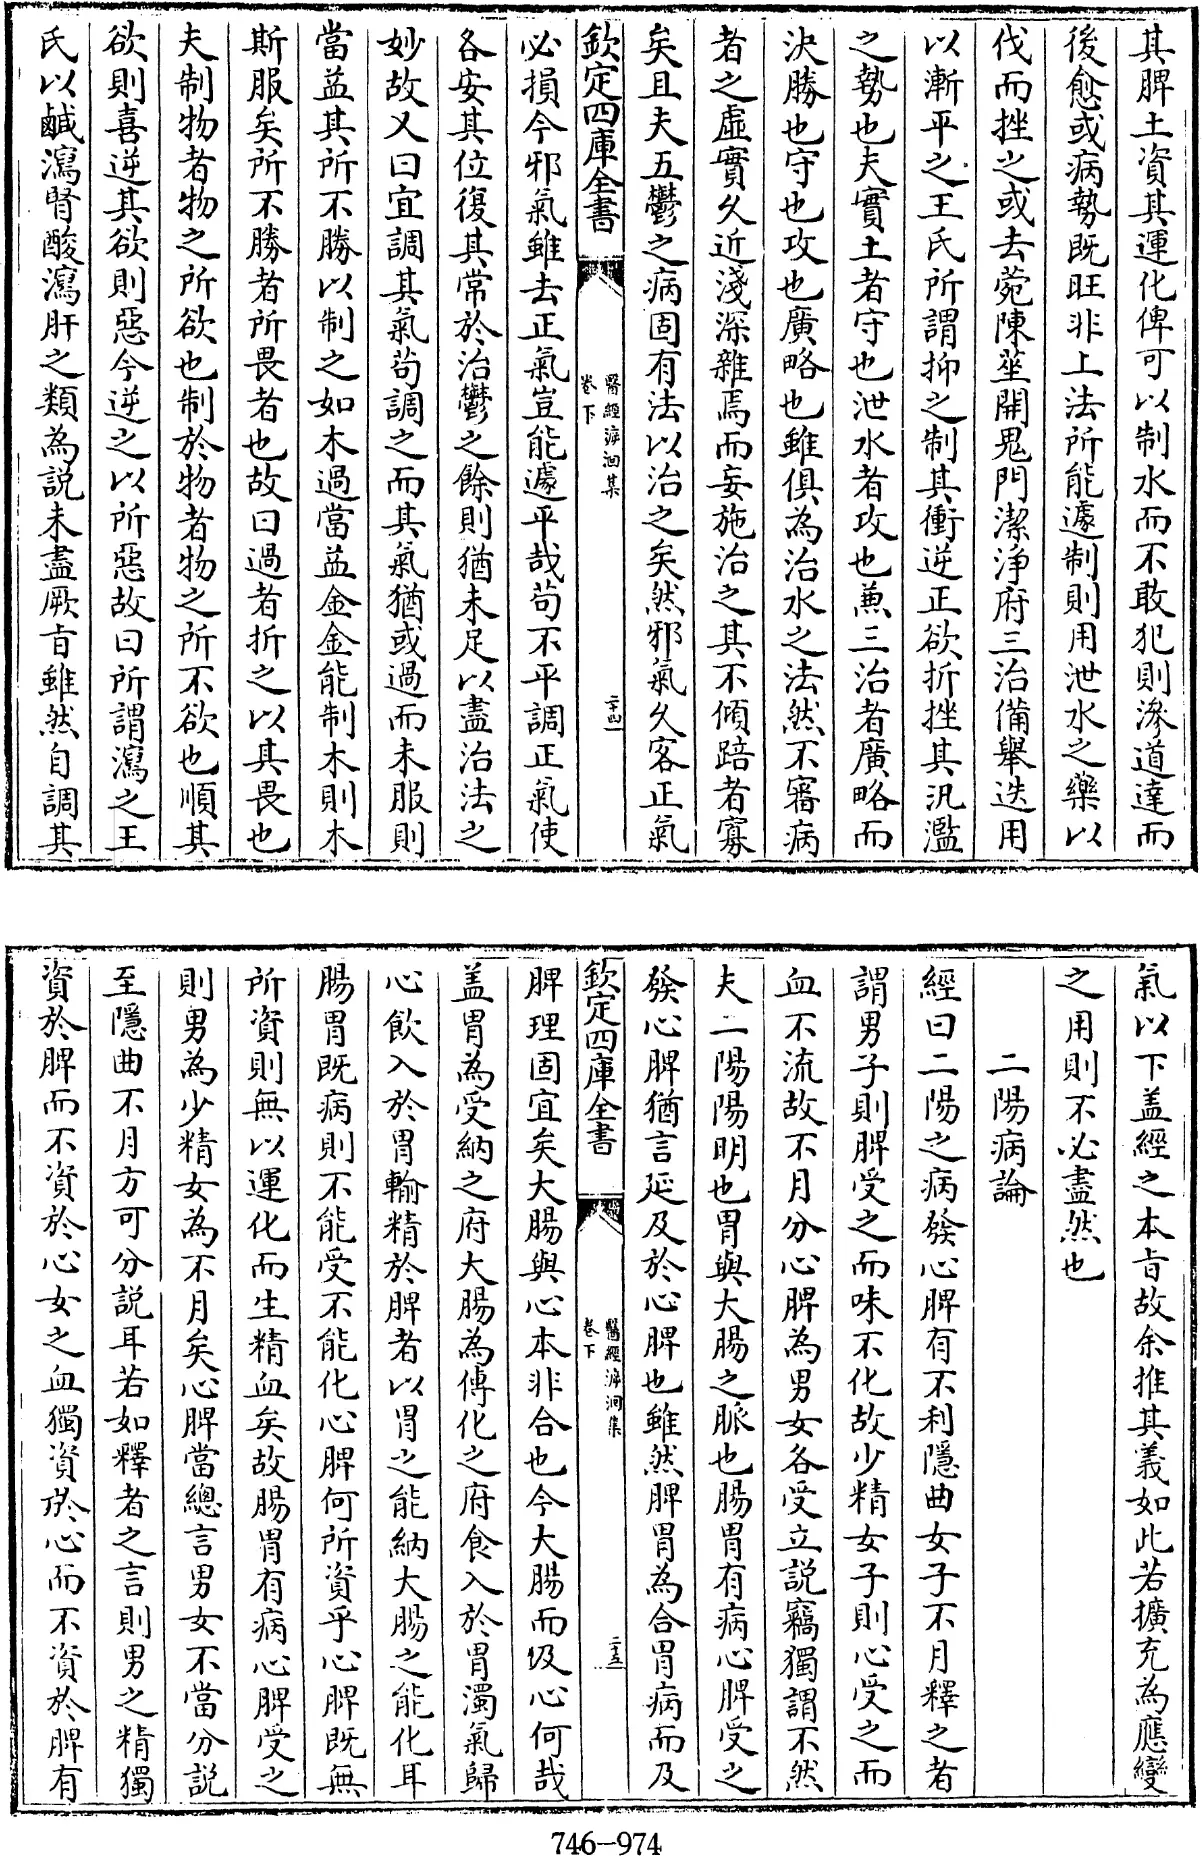 其脾土資其運化俾可以制水而不敢犯則滲道達而
後愈或病勢既旺非上法所能遽制則用泄水之藥以
伐而挫之或去菀陳莝開鬼門潔淨府三治備舉迭用
以漸平之王氏所謂抑之制其衝逆正欲折挫其汎濫
之勢也夫實土者守也泄水者攻也兼三治者廣略而
決勝也守也攻也廣略也雖俱為治水之法然不審病
者之虛實久近淺深雜焉而妄施治之其不傾踣者寡
矣且夫五鬱之病固有法以治之矣然邪氣久客正氣
欽定四庫全書
醫經溯洄集
卷下
二十四
必損今邪氣雖去正氣豈能遽平哉苟不平調正氣使
各安其位復其常於治鬱之餘則猶未足以盡治法之
妙故又曰宜調其氣苟調之而其氣猶或過而未服則
當益其所不勝以制之如木過當益金金能制木則木
斯服矣所不勝者所畏者也故曰過者折之以其畏也
夫制物者物之所欲也制於物者物之所不欲也順其
欲則喜逆其欲則惡今逆之以所惡故曰所謂瀉之王
氏以鹹瀉腎酸瀉肝之類為說未盡厥旨雖然自調其
氣以下盖經之本旨故余推其義如此若擴充為應變
之用則不必盡然也
二陽病論
經曰二陽之病發心脾有不利隱曲女子不月釋之者
謂男子則脾受之而味不化故少精女子則心受之而
血不流故不月分心脾為男女各受立說竊獨謂不然
夫二陽陽明也胃與大腸之脈也腸胃有病心脾受之
發心脾猶言延及於心脾也雖然脾胃為合胃病而及
欽定四庫全書
醫經溯洄集
卷下
二十五
脾理固宜矣大腸與心本非合也今大腸而及心何哉
盖胃為受納之府大腸為傳化之府食入於胃濁氣歸
心飲入於胃輸精於脾者以胃之能納大腸之能化耳
腸胃既病則不能受不能化心脾何所資乎心脾既無
所資則無以運化而生精血矣故腸胃有病心脾受之
則男為少精女為不月矣心脾當總言男女不當分說
至隱曲不月方可分說耳若如釋者之言則男之精獨
資於脾而不資於心女之血獨資於心而不資於脾有
746-974